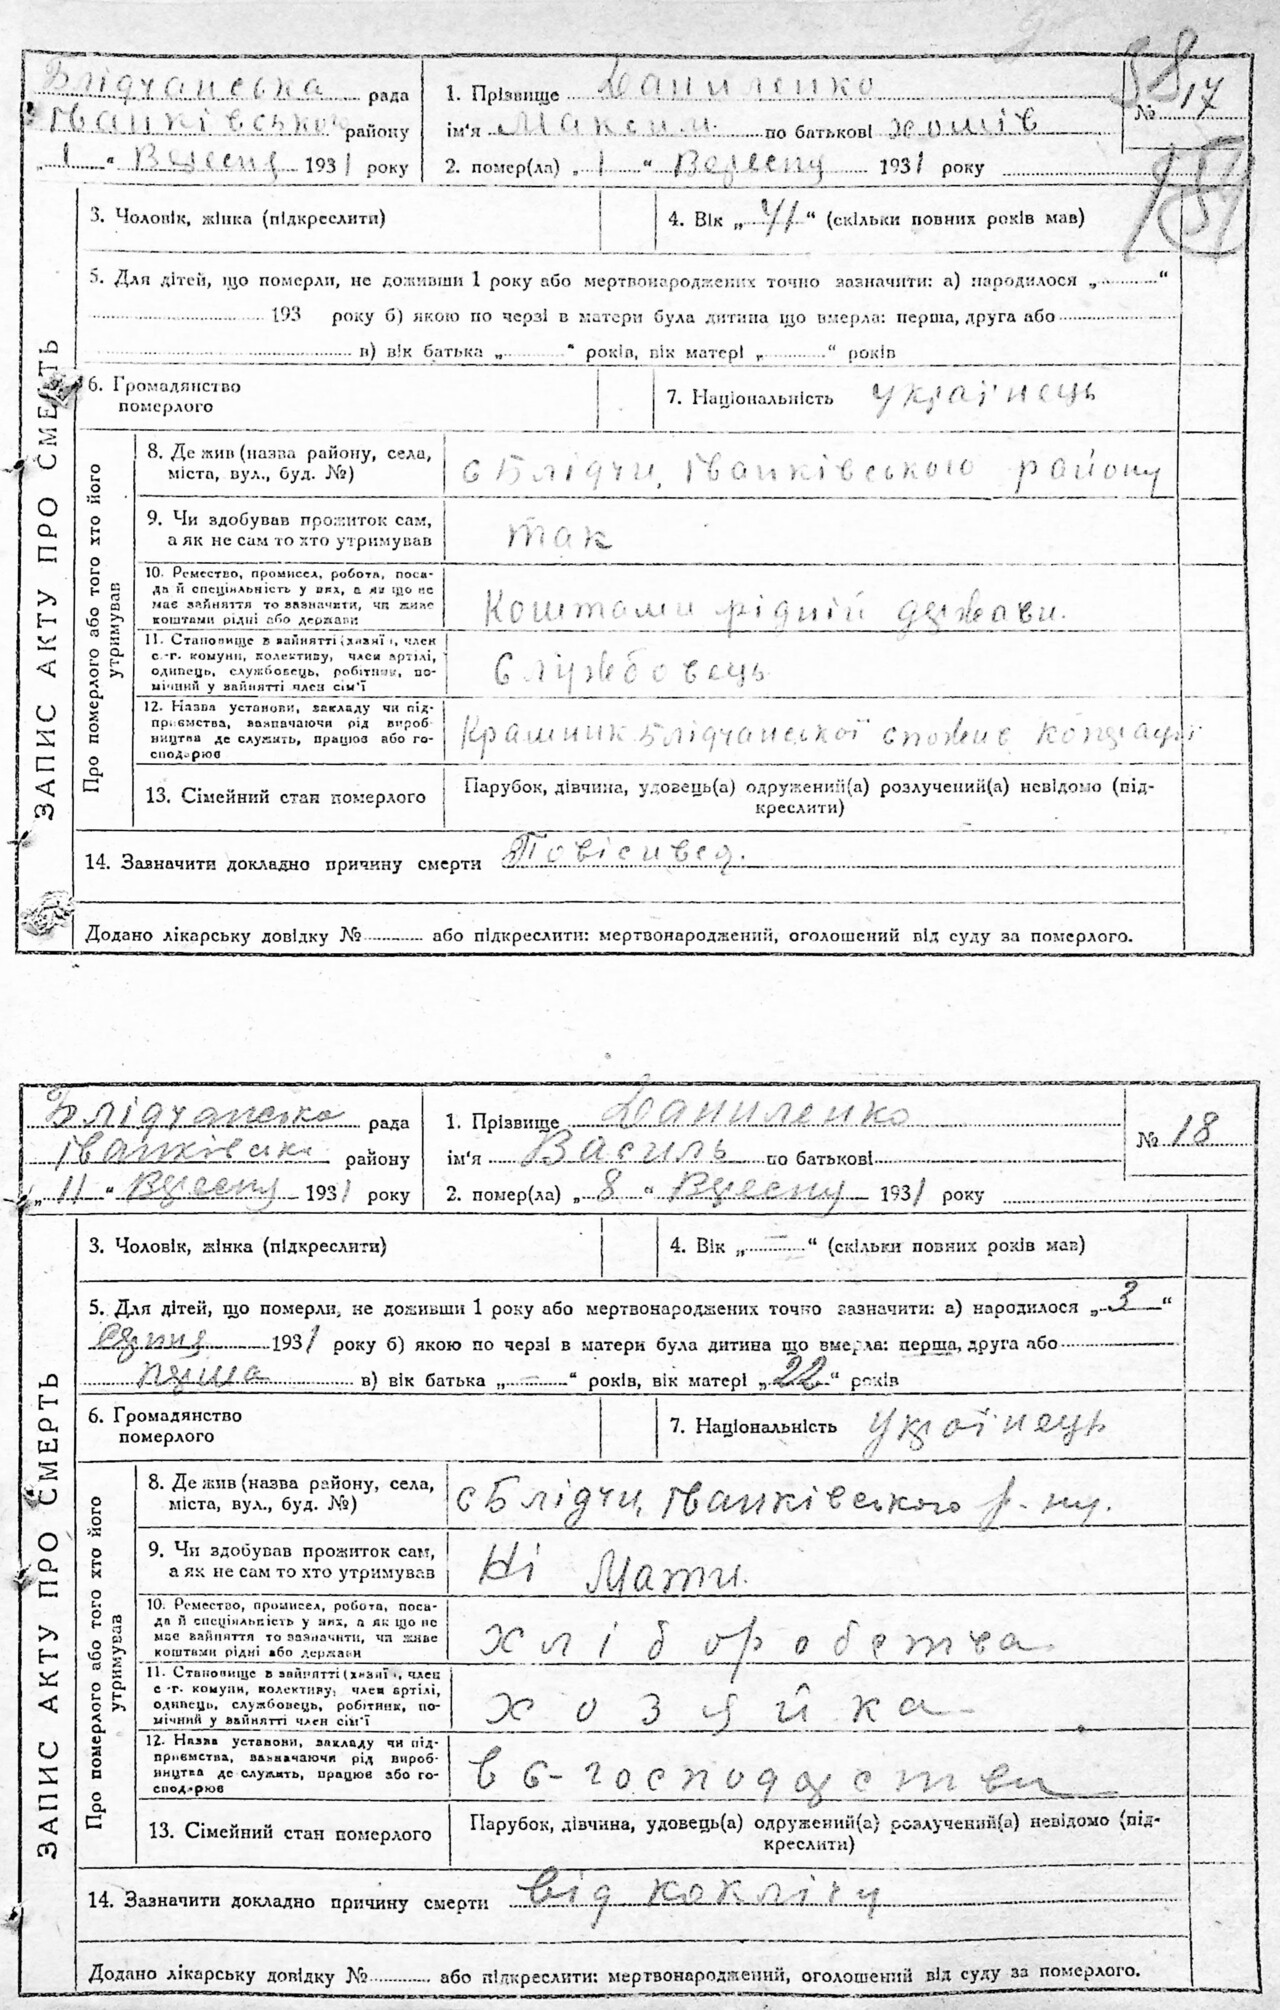 Блідчанська рада
Іванківсько району
„ 1 “ Вересня 1931 року
1. Прізвище Даниленко
ім'я Максим по батькові хомів
2. помер(ла) „ 1 “ Вересня 1931 року
№ 17
3. Чоловік, жінка (підкреслити)
4. Вік „ 41 “ (скільки повних років мав)
5. Для дітей, що померли, не доживши 1 року або мертвонароджених точно зазначити: а) народилося „ “
193 року б) якою по черзі в матери була дитина що вмерла: перша, друга або
в) вік батька „ “ років, вік матері „ “ років
6. Громадянство
померлого
7. Національність українець
ЗАПИС АКТУ ПРО СМЕРТЬ
Про померлого або того хто його
утримував
8. Де жив (назва району, села,
міста, вул., буд. №)
с Блідчи, Іванківського району
9. Чи здобував прожиток сам,
а як не сам то хто утримував
так
10. Ремество, промисел, робота, поса-
да й спеціяльність у них, а як що не
має зайняття то зазначити, чи живе
коштами рідні або держави
Коштами рідній держави.
11. Становище в зайнятті (хазяї , член
с.-г. комуни, колективу, член артілі,
одинець, службовець, робітник, по-
мічний у зайнятті член сім'ї
Службовець
12. Назва установи, закладу чи під-
приємства, зазначаючи рід вироб-
ництва де служить, працює або го-
сподарює
Крамник Блідчанської спожив
13. Сімейний стан померлого
Парубок, дівчина, удовець(а) одружений(а) розлучений(а) невідомо (під-
креслити)
14. Зазначити докладно причину смерти Повісився.
Додано лікарську довідку № або підкреслити: мертвонароджений, оголошений від суду за померлого.
Блідчанська рада
Іванківськ району
„ 11 “ Вересня 1931 року
1. Прізвище Даниленко
ім'я Василь по батькові
2. помер(ла) „ 8 “ Вересня 1931 року
№ 18
3. Чоловік, жінка (підкреслити)
4. Вік „ = “ (скільки повних років мав)
5. Для дітей, що померли, не доживши 1 року або мертвонароджених точно зазначити: а) народилося „ 3 “
1931 року б) якою по черзі в матери була дитина що вмерла: перша, друга або
перша в) вік батька „ – “ років, вік матері „ 22 “ років
6. Громадянство
померлого
7. Національність українець
ЗАПИС АКТУ ПРО СМЕРТЬ
Про померлого або того хто його
утримував
8. Де жив (назва району, села,
міста, вул., буд. №)
с Блідчи, Іванківського р-ну.
9. Чи здобував прожиток сам,
а як не сам то хто утримував
Ні Мати.
10. Ремество, промисел, робота, поса-
да й спеціяльність у них, а як що не
має зайняття то зазначити, чи живе
коштами рідні або держави
хліборобства
11. Становище в зайнятті (хазяї , член
с.-г. комуни, колективу, член артілі,
одинець, службовець, робітник, по-
мічний у зайнятті член сім'ї
хозяйка
12. Назва установи, закладу чи під-
приємства, зазначаючи рід вироб-
ництва де служить, працює або го-
сподарює
в с-господарстви
13. Сімейний стан померлого
Парубок, дівчина, удовець(а) одружений(а) розлучений(а) невідомо (під-
креслити)
14. Зазначити докладно причину смерти від кокліту
Додано лікарську довідку № або підкреслити: мертвонароджений, оголошений від суду за померлого.